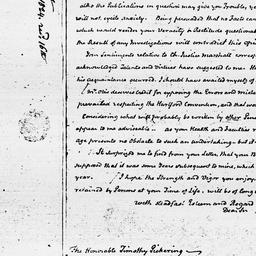 also the Publications in question may give you Trouble, ye
will not excite Anxiety. Being persuaded that no Facts can
which would render your Veracity or Rectitude questionab
the Result of any Investigations will contradict this Opin
Your Sentiments relative to the Justice Marshall corresp
acknowledged Talents and Virtues have suggested to me. H
his acquaintance occurred, I should have availed myself of
Mr. Otis deserves credit for exposing the Errors and mista
prevailed respecting the Hartford Convention, and that wor
Considering what will probably be written by other Pens
appear to me adviseable — as your Health and Faculties r
age presents no Obstacle to such an undertaking — but it
It surprised me to find from your Letter, that your B
supposed that it was some Years subsequent to mine, which
year. I hope the Strength and Vigor you enjoy
retained by Persons at your Time of Life, will be of long c
with steadfast Esteem and Regard
Dear Sir
The Honorable Timothy Pickering
1824, and 16th